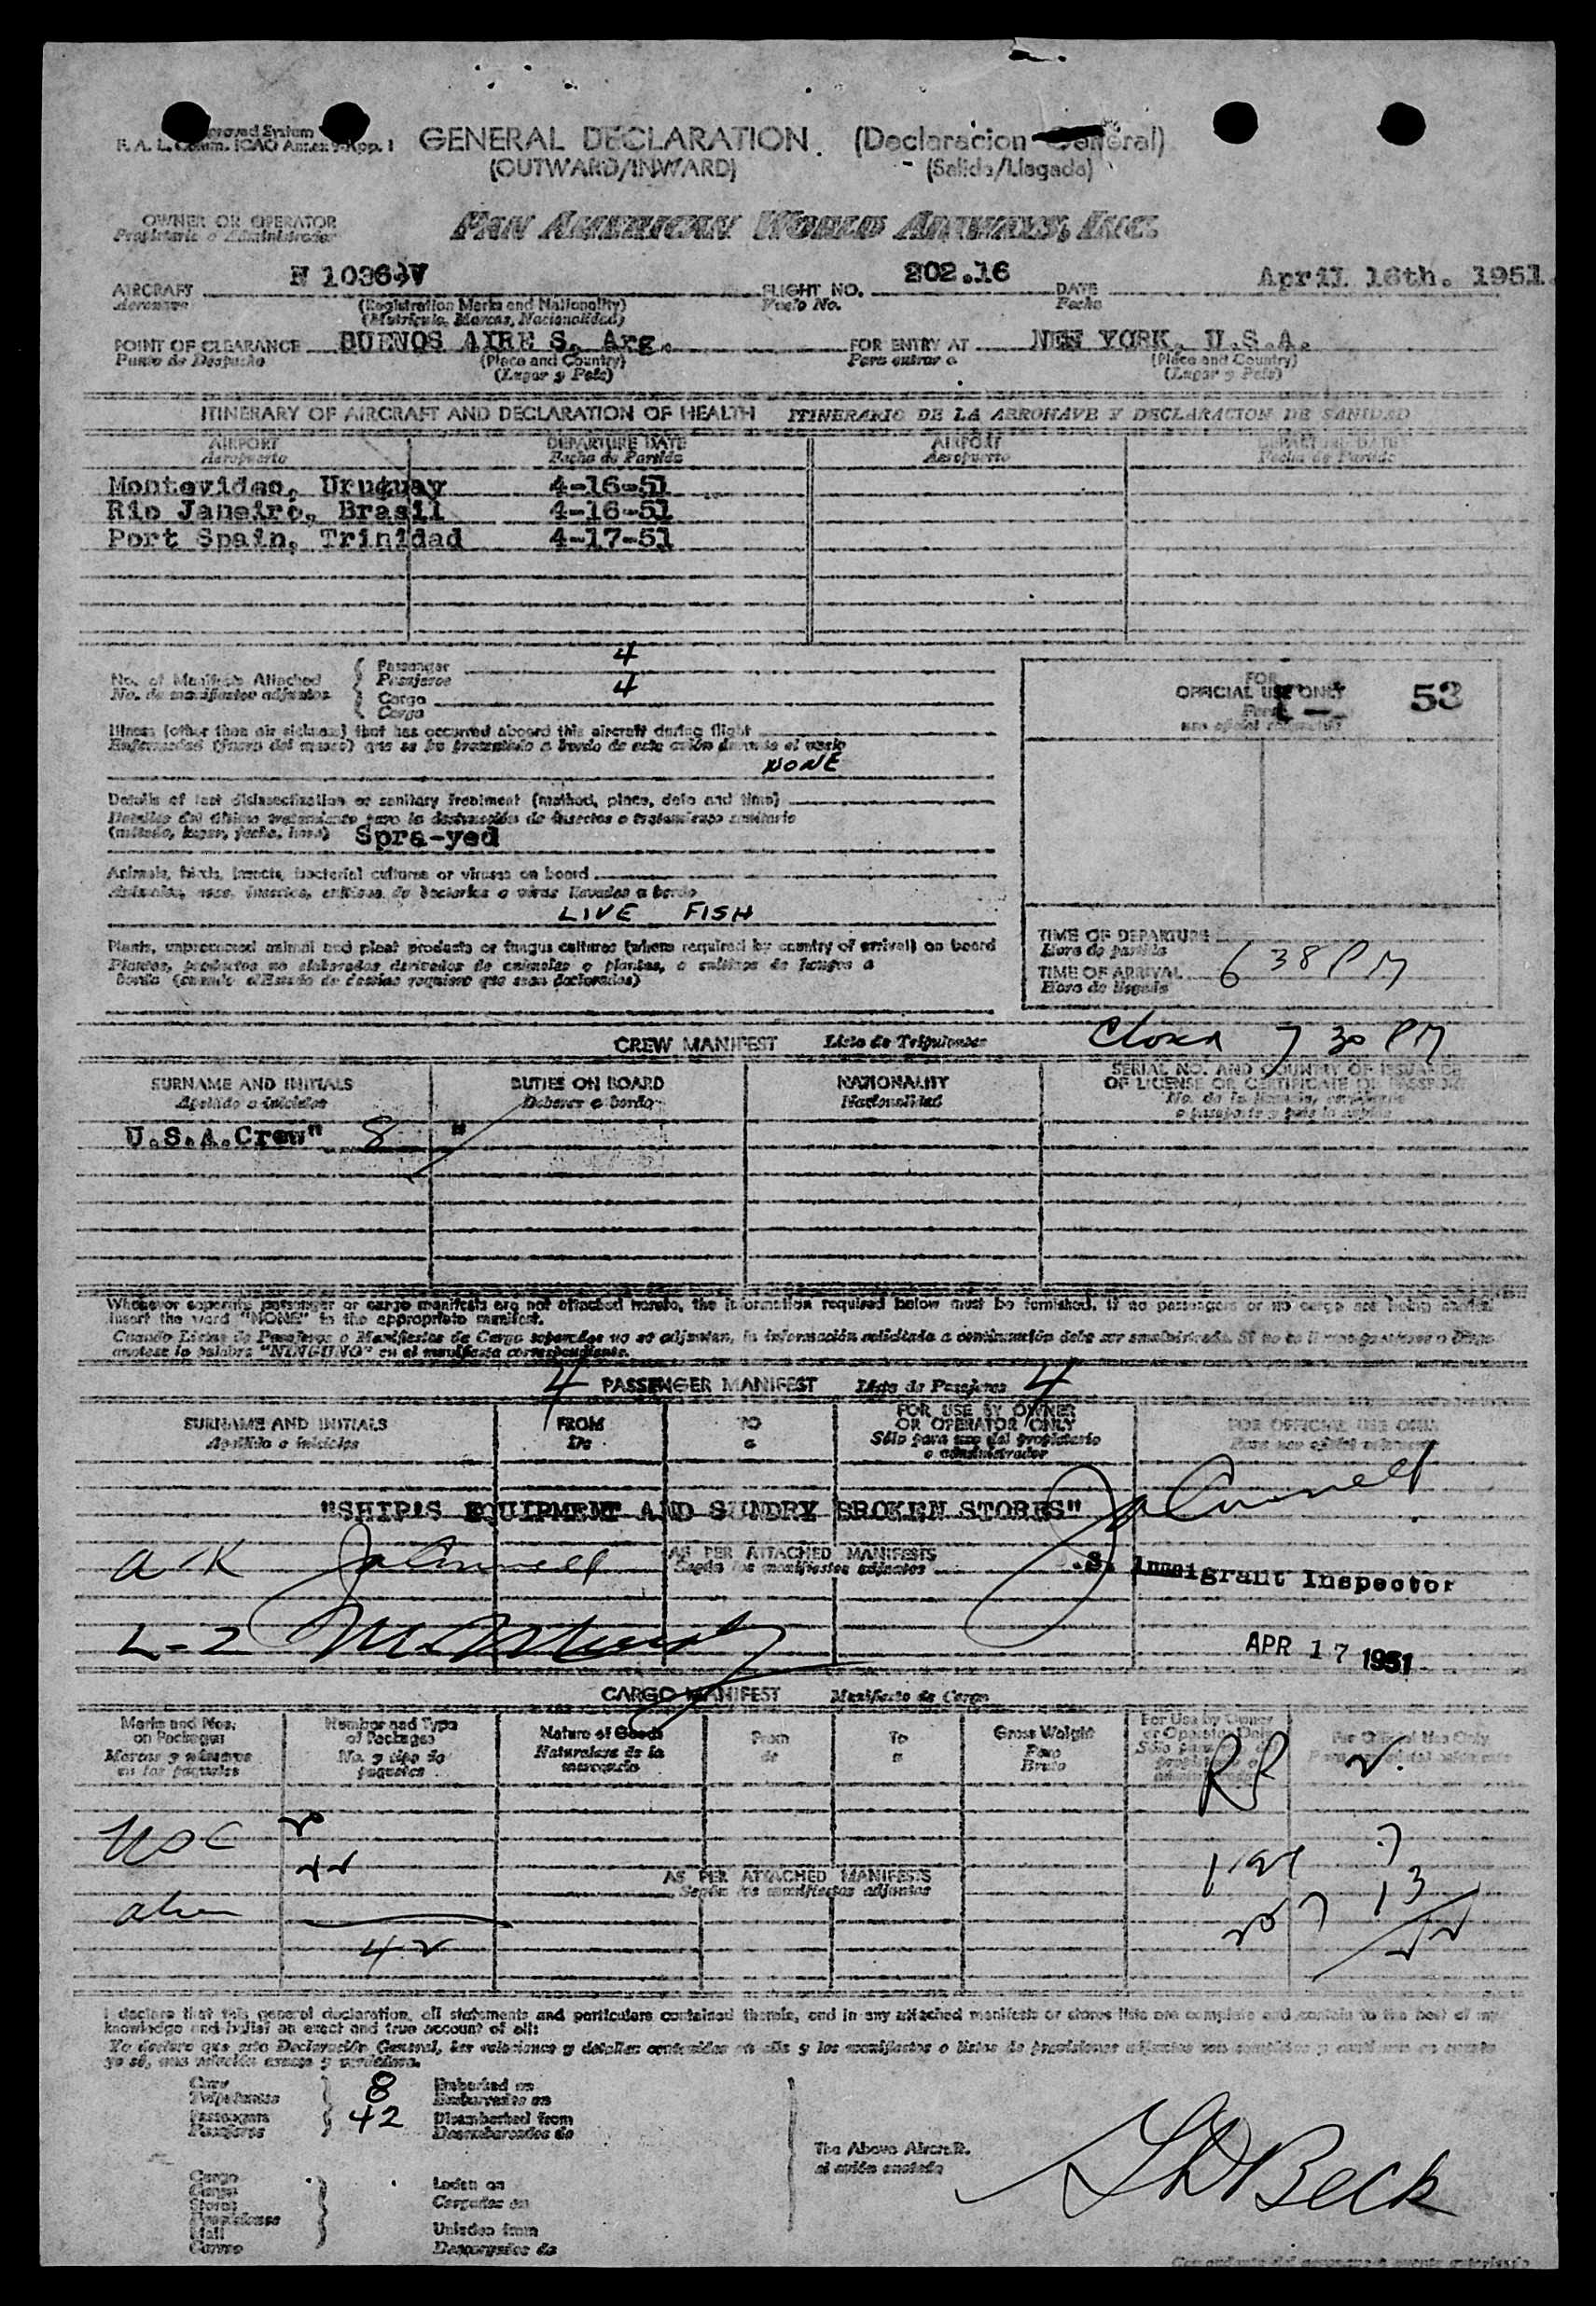 F. A. L. Comm. ICAO Annex 9-App. 1
GENERAL DECLARATION. (Declaracion General)
(OUTWARD/INWARD) (Salida/Llegada)
OWNER OR OPERATOR
Propietario o Administrador
PAN AMERICAN WORLD AIRWAYS, INC.
AIRCRAFT N 1036 V FLIGHT NO. 202.16 DATE April 16th. 1951.
Aeronave (Registration Marks and Nationality) Vuelo No. Fecha
(Matrícula, Marcas, Nacionalidad)
POINT OF CLEARANCE BUENOS AIRE S, Arg. FOR ENTRY AT NEW YORK, U.S.A.
Punto de Despacho (Place and Country) Para entrar a (Place and Country)
(Lugar y País) (Lugar y País)
ITINERARY OF AIRCRAFT AND DECLARATION OF HEALTH ITINERARIO DE LA AERONAVE Y DECLARACION DE SANIDAD
AIRPORT DEPARTURE DATE AIRPORT DEPARTURE DATE
Aeropuerto Fecha de Partida Aeropuerto Fecha de Partida
Montevideo, Uruguay 4-16-51
Rio Janeiro, Brasil 4-16-51
Port Spain, Trinidad 4-17-51
No. of Manifests Attached Passenger 4
No. de manifiestos adjuntos Pasajeros
Cargo 4
Carga
FOR
OFFICIAL USE ONLY 53
Para
uso oficial solamente
Illness (other than air sickness) that has occurred aboard this aircraft during flight
Enfermedad (fuera del mareo) que se ha presentado a bordo de este avión durante el vuelo
NONE
Details of last disinsectization or sanitary treatment (method, place, date and time)
Detalles del último tratamiento para la destrucción de insectos o tratamiento sanitario
(método, lugar, fecha, hora) Spra-yed
Animals, birds, insects, bacterial cultures or viruses on board
Animales, aves, insectos, cultivos de bacterias o virus llevados a bordo
LIVE FISH
Plants, unprocessed animal and plant products or fungus cultures (where required by country of arrival) on board
Plantas, productos no elaborados derivados de animales o plantas, o cultivos de hongos a
bordo (cuando el Estado de destino requiere que sean declarados)
TIME OF DEPARTURE
Hora de partida
TIME OF ARRIVAL 6 38 PM
Hora de llegada
7 30 PM
CREW MANIFEST Lista de Tripulantes
SURNAME AND INITIALS DUTIES ON BOARD NATIONALITY SERIAL NO. AND COUNTRY OF ISSUANCE
OF LICENSE OR CERTIFICATE OR PASSPORT
Apelido o iniciales Deberes a bordo Nacionalidad No. de la licencia, certificado
o pasaporte y país la expide
U.S.A.Crew" 8 "
Whenever separate passenger or cargo manifests are not attached hereto, the information required below must be furnished. If no passengers or no cargo are being carried
insert the word "NONE" in the appropriate manifest.
Cuando Listas de Pasajeros o Manifiestos de Carga separados no se adjuntan, la información solicitada a continuación debe ser suministrada.
anotese la palabra "NINGUNO" en el manifiesto correspondiente.
4 PASSENGER MANIFEST Lista de Pasajeros 4
SURNAME AND INITIALS FROM TO FOR USE BY OWNER
OR OPERATOR ONLY FOR OFFICIAL USE ONLY
Apelido o iniciales De a Sólo para uso del propietario
o administrador Para uso oficial solamente
"SHIP'S EQUIPMENT AND SUNDRY BROKEN STORES"
AS PER ATTACHED MANIFESTS
Según los manifiestos adjuntos
.S. Immigrant Inspector
APR 17 1951
CARGO MANIFEST Manifiesto de Carga
Marks and Nos.
on Packages
Marcas y números
en los paquetes
Number and Type
of Packages
No. y tipo de
paquetes
Nature of Goods
Naturaleza de la
mercancía
From
de
To
a
Gross Weight
Peso
Bruto
For Use by Owner
or Operator Only
For Official Use Only
USC
AS PER ATTACHED MANIFESTS
Según los manifiestos adjuntos
alien
I declare that this general declaration, all statements and particulars contained therein, and in any attached manifests or stores lists are complete and contain to the best of my
knowledge and belief an exact and true account of all:
Yo declaro que esta Declaración General, las relaciones y detalles contenidos en ella y los manifiestos o listas de provisiones adjuntos son completos y
yo sé, una relación exacta y verdadera.
Crew 8 Embarked on
Tripulantes Embarcados en
Passengers 42 Disembarked from
Pasajeros Desembarcados de
The Above Aircraft.
al avión anotado
Cargo
Carga Laden on
Stores Cargados en
Provisiones
Mail Unladen from
Correo Descargados de
Beck